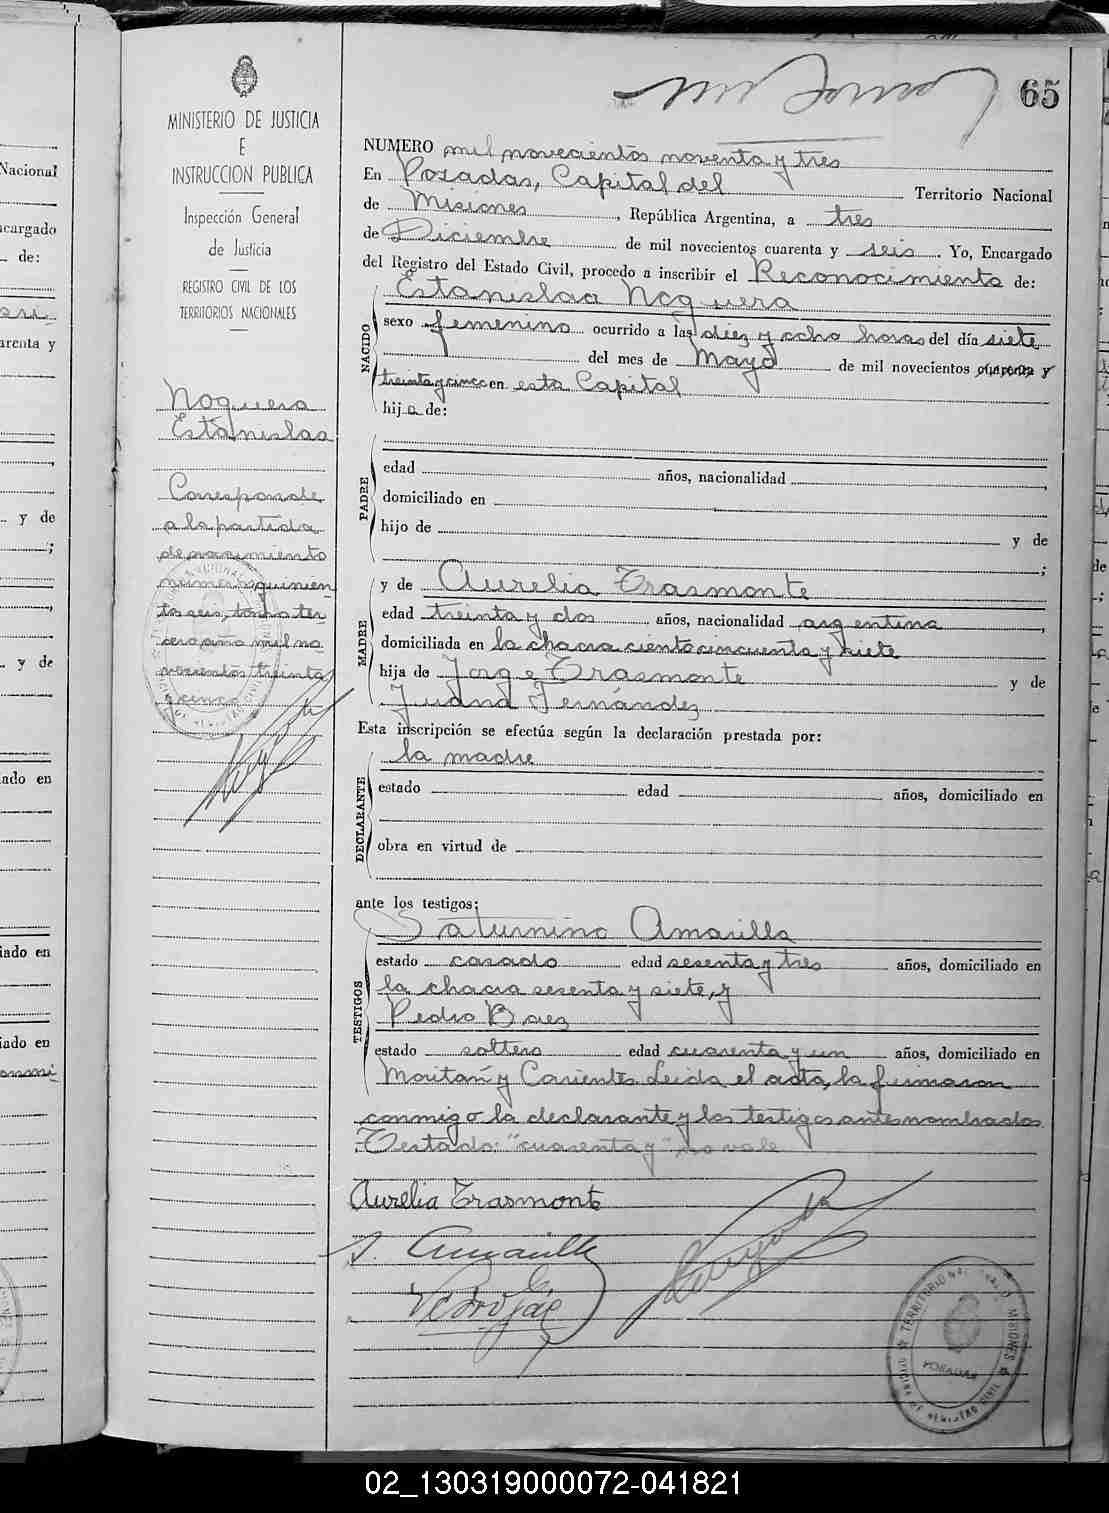 65
MINISTERIO DE JUSTICIA
E
INSTRUCCION PUBLICA
Inspección General
de Justicia
REGISTRO CIVIL DE LOS
TERRITORIOS NACIONALES
Noguera
Estanislaa
Corresponde
a la partida
de nacimiento
numero quinien
tos seis, tomo ter
cero año mil no
vecientos treinta
y cinco
NUMERO mil novecientos noventa y tres
En Posadas, Capital del Territorio Nacional
de Misiones, República Argentina, a tres
de Diciembre de mil novecientos cuarenta y seis. Yo, Encargado
del Registro del Estado Civil, procedo a inscribir el Reconocimiento de:
Estanislaa Noguera
NACIDO
sexo femenino ocurrido a las diez y ocho horas del día siete
del mes de Mayo de mil novecientos cuarenta y
treinta y cinco en esta Capital
hija de:
PADRE
edad años, nacionalidad
domiciliado en
hijo de y de
;
MADRE
y de Aurelia Trasmonte
edad treinta y dos años, nacionalidad argentina,
domiciliada en la chacra ciento cincuenta y siete
hija de Jorge Trasmonte y de
Juana Fernández
Esta inscripción se efectúa según la declaración prestada por:
DECLARANTE
la madre
estado edad años, domiciliado en
obra en virtud de
ante los testigos:
TESTIGOS
Saturnino Amarilla
estado casado edad sesenta y tres años, domiciliado en
la chacra sesenta y siete, y
Pedro Baez
estado soltero edad cuarenta y un años, domiciliado en
Moritán y Corrientes. Leida el acta, la firmaron
conmigo la declarante y los testigos antes nombrados
Testado: "cuarenta y" no vale
Aurelia Trasmonte
S. Amarilla
TERRITORIO NACIONAL D MISIONES
POSADAS
REGISTRO CIVIL
Nacional
cargado
de:
arenta y
y de
;
y de
iado en
iado en
iado en
02_130319000072-041821